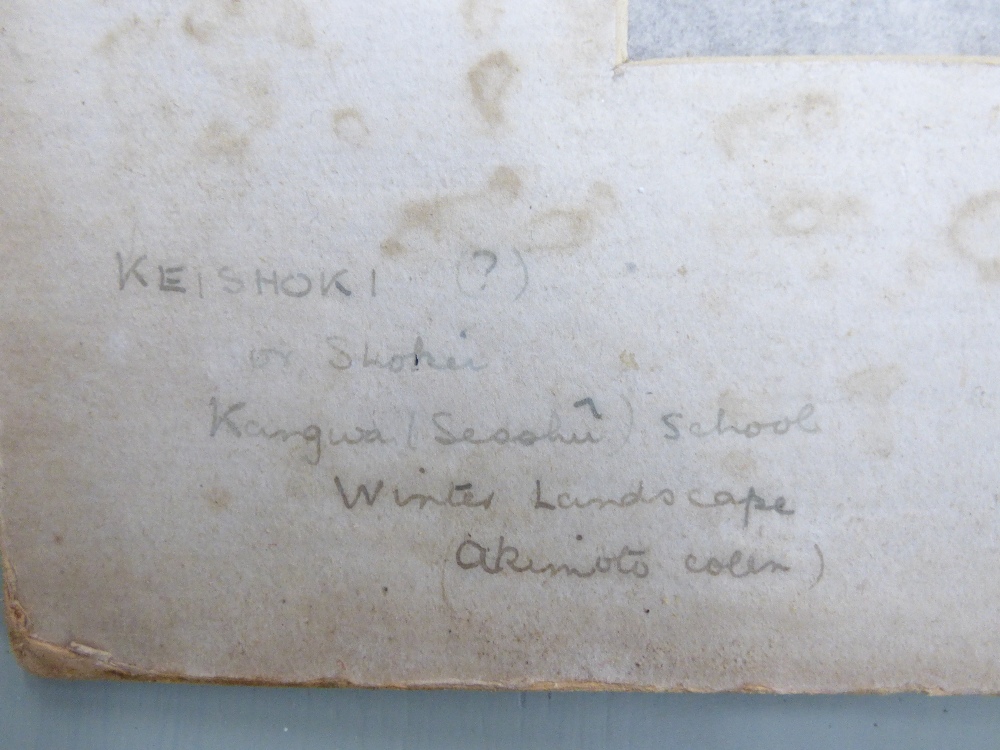 KEISHOKI (?)
or Shokei
Kangwa (Sesshū) School
Winter Landscape
(Akimoto colln)